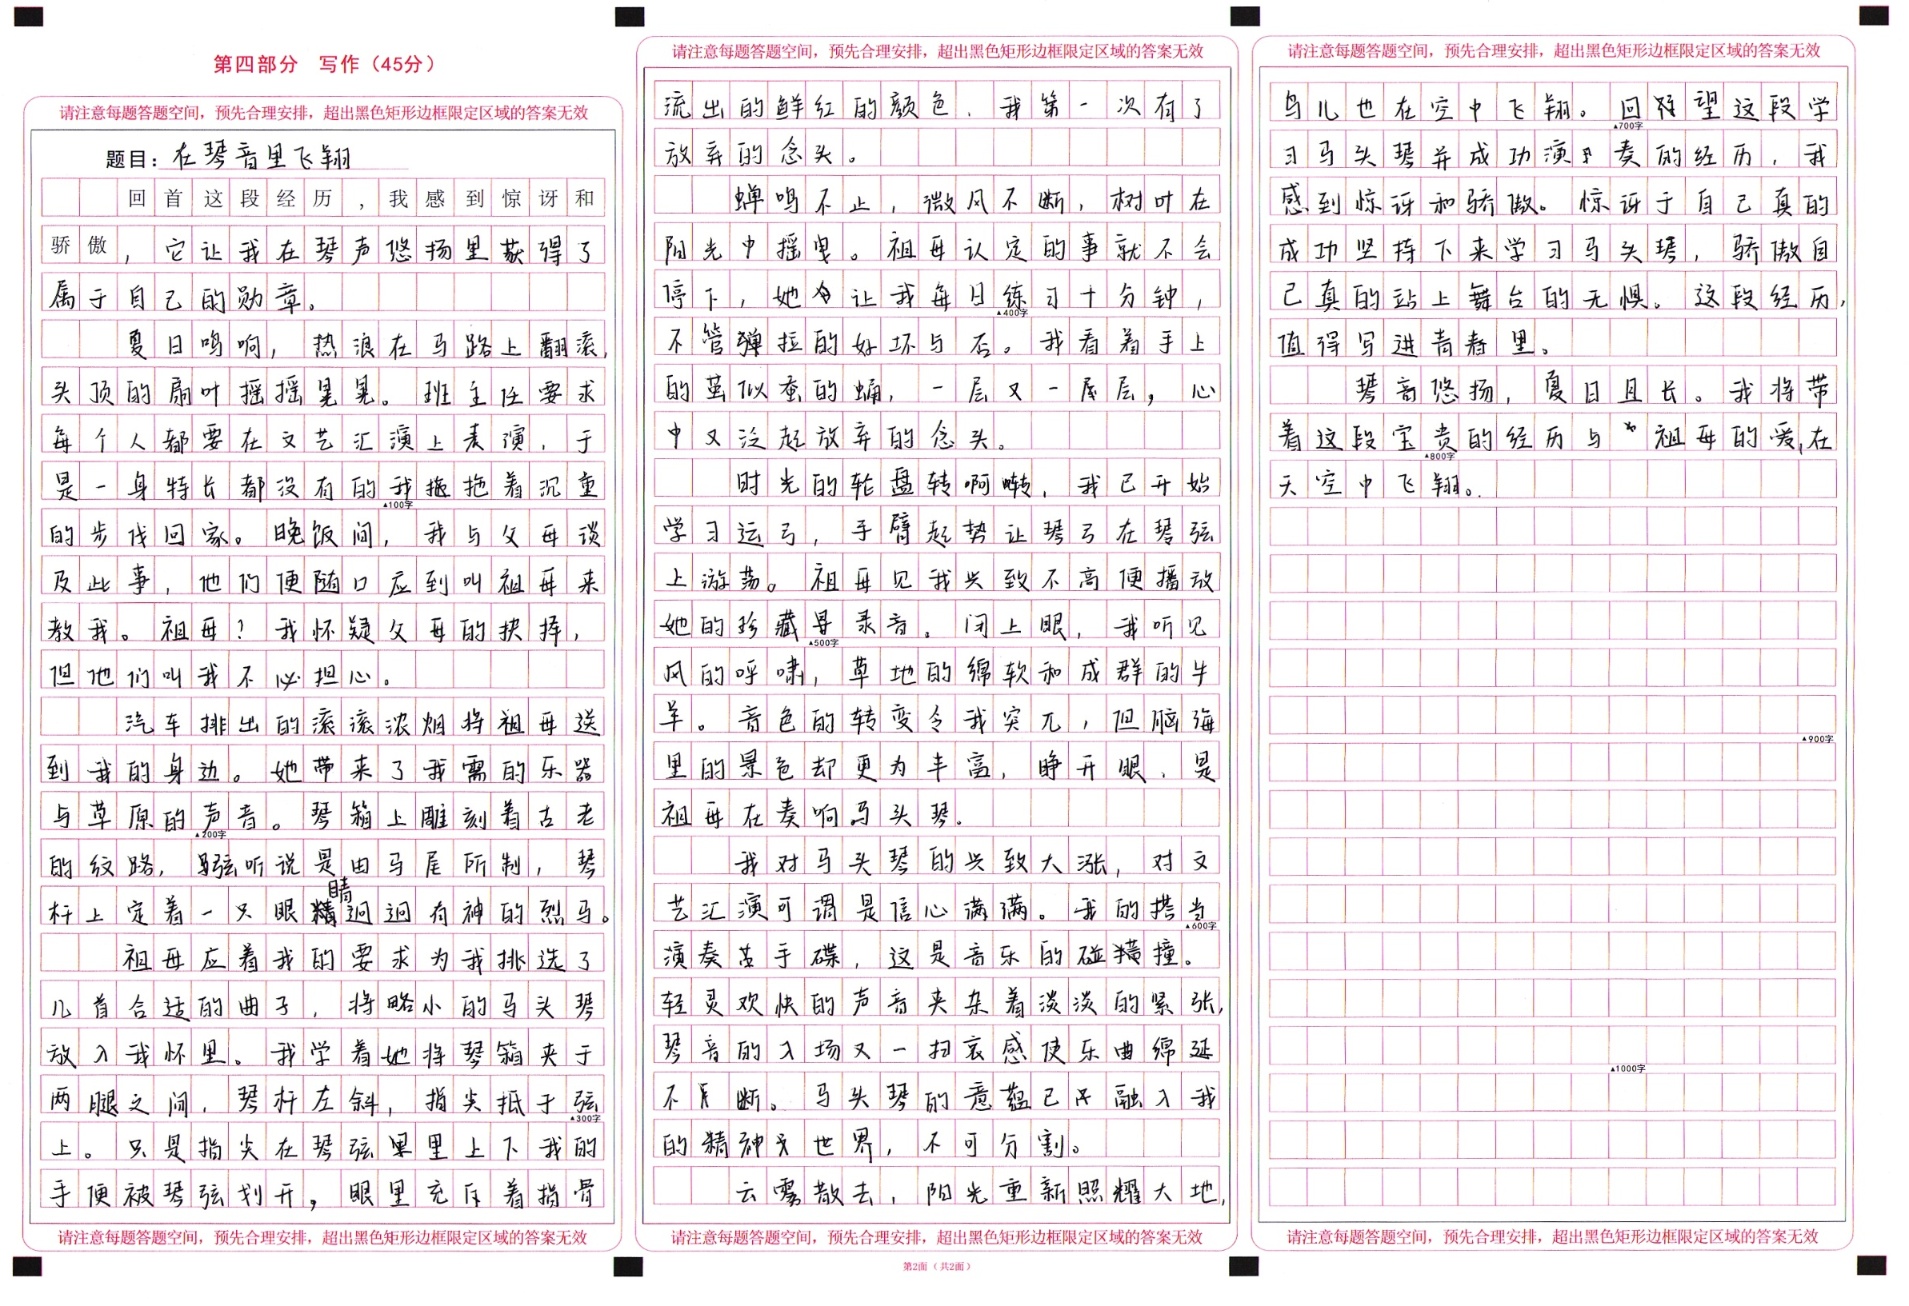 第四部分　写作（45分）
请注意每题答题空间，预先合理安排，超出黑色矩形边框限定区域的答案无效
题目：在琴音里飞翔
回首这段经历，我感到惊讶和
骄傲，它让我在琴声悠扬里获得了
属于自己的勋章。
夏日鸣响，热浪在马路上翻滚，
头顶的扇叶摇摇晃晃。班主任要求
每个人都要在文艺汇演上表演，于
是一身特长都没有的我拖拖着沉重
▲100字
的步伐回家。晚饭间，我与父母谈
及此事，他们便随口应到叫祖母来
教我。祖母？我怀疑父母的抉择，
但他们叫我不必担心。
汽车排出的滚滚浓烟将祖母送
到我的身边。她带来了我需的乐器
与草原的声音。琴箱上雕刻着古老
▲200字
的纹路，弦听说是由马尾所制，琴
杆上定着一只眼睛迥迥有神的烈马。
祖母应着我的要求为我挑选了
几首合适的曲子，将略小的马头琴
放入我怀里。我学着她将琴箱夹于
两腿之间，琴杆左斜，指尖抵于弦
▲300字
上。只是指尖在琴弦里里上下我的
手便被琴弦划开，眼里充斥着指骨
请注意每题答题空间，预先合理安排，超出黑色矩形边框限定区域的答案无效
请注意每题答题空间，预先合理安排，超出黑色矩形边框限定区域的答案无效
流出的鲜红的颜色，我第一次有了
放弃的念头。
蝉鸣不止，微风不断，树叶在
阳光中摇曳。祖母认定的事就不会
停下，她让我每日练习十分钟，
▲400字
不管弹拉的好坏与否。我看着手上
的茧似蚕的蛹，一层又一层，心
中又泛起放弃的念头。
时光的轮盘转啊转，我已开始
学习运弓，手臂起势让琴弓在琴弦
上游荡。祖母见我兴致不高便播放
她的珍藏录音。闭上眼，我听见
▲500字
风的呼啸，草地的绵软和成群的牛
羊。音色的转变令我突兀，但脑海
里的景色却更为丰富，睁开眼，是
祖母在奏响马头琴。
我对马头琴的兴致大涨，对文
艺汇演可谓是信心满满。我的搭当
▲600字
演奏苦手碟，这是音乐的碰撞。
轻灵欢快的声音夹杂着淡淡的紧张，
琴音的入场又一扫哀感使乐曲绵延
不断。马头琴的意蕴已融入我
的精神世界，不可分割。
云雾散去，阳光重新照耀大地，
请注意每题答题空间，预先合理安排，超出黑色矩形边框限定区域的答案无效
第2面（共2面）
请注意每题答题空间，预先合理安排，超出黑色矩形边框限定区域的答案无效
鸟儿也在空中飞翔。回望这段学
▲700字
习马头琴并成功演奏的经历，我
感到惊讶和骄傲。惊讶于自己真的
成功坚持下来学习马头琴，骄傲自
己真的站上舞台的无惧。这段经历，
值得写进青春里。
琴音悠扬，夏日且长。我将带
着这段宝贵的经历与祖母的爱，在
▲800字
天空中飞翔。
▲900字
▲1000字
请注意每题答题空间，预先合理安排，超出黑色矩形边框限定区域的答案无效